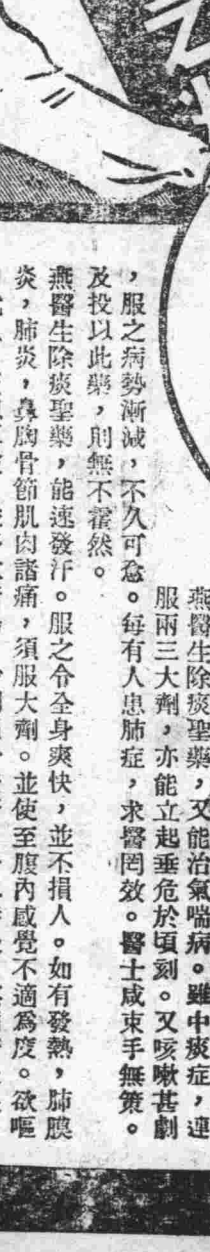 燕醫生除痰聖藥，又能治氣喘病。雖中痰症，連
服兩三大劑，亦能立起垂危於頃刻。又咳嗽甚劇
，服之病勢漸減，不久可愈。每有人患肺症，求醫罔效。醫士咸束手無策。
及投以此藥，則無不霍然。
燕醫生除痰聖藥，能速發汗。服之令全身爽快，並不損人。如有發熱，肺膜
炎，肺炎，鼻胸骨節肌肉諸痛，須服大劑。並使至腹內感覺不適為度。欲嘔